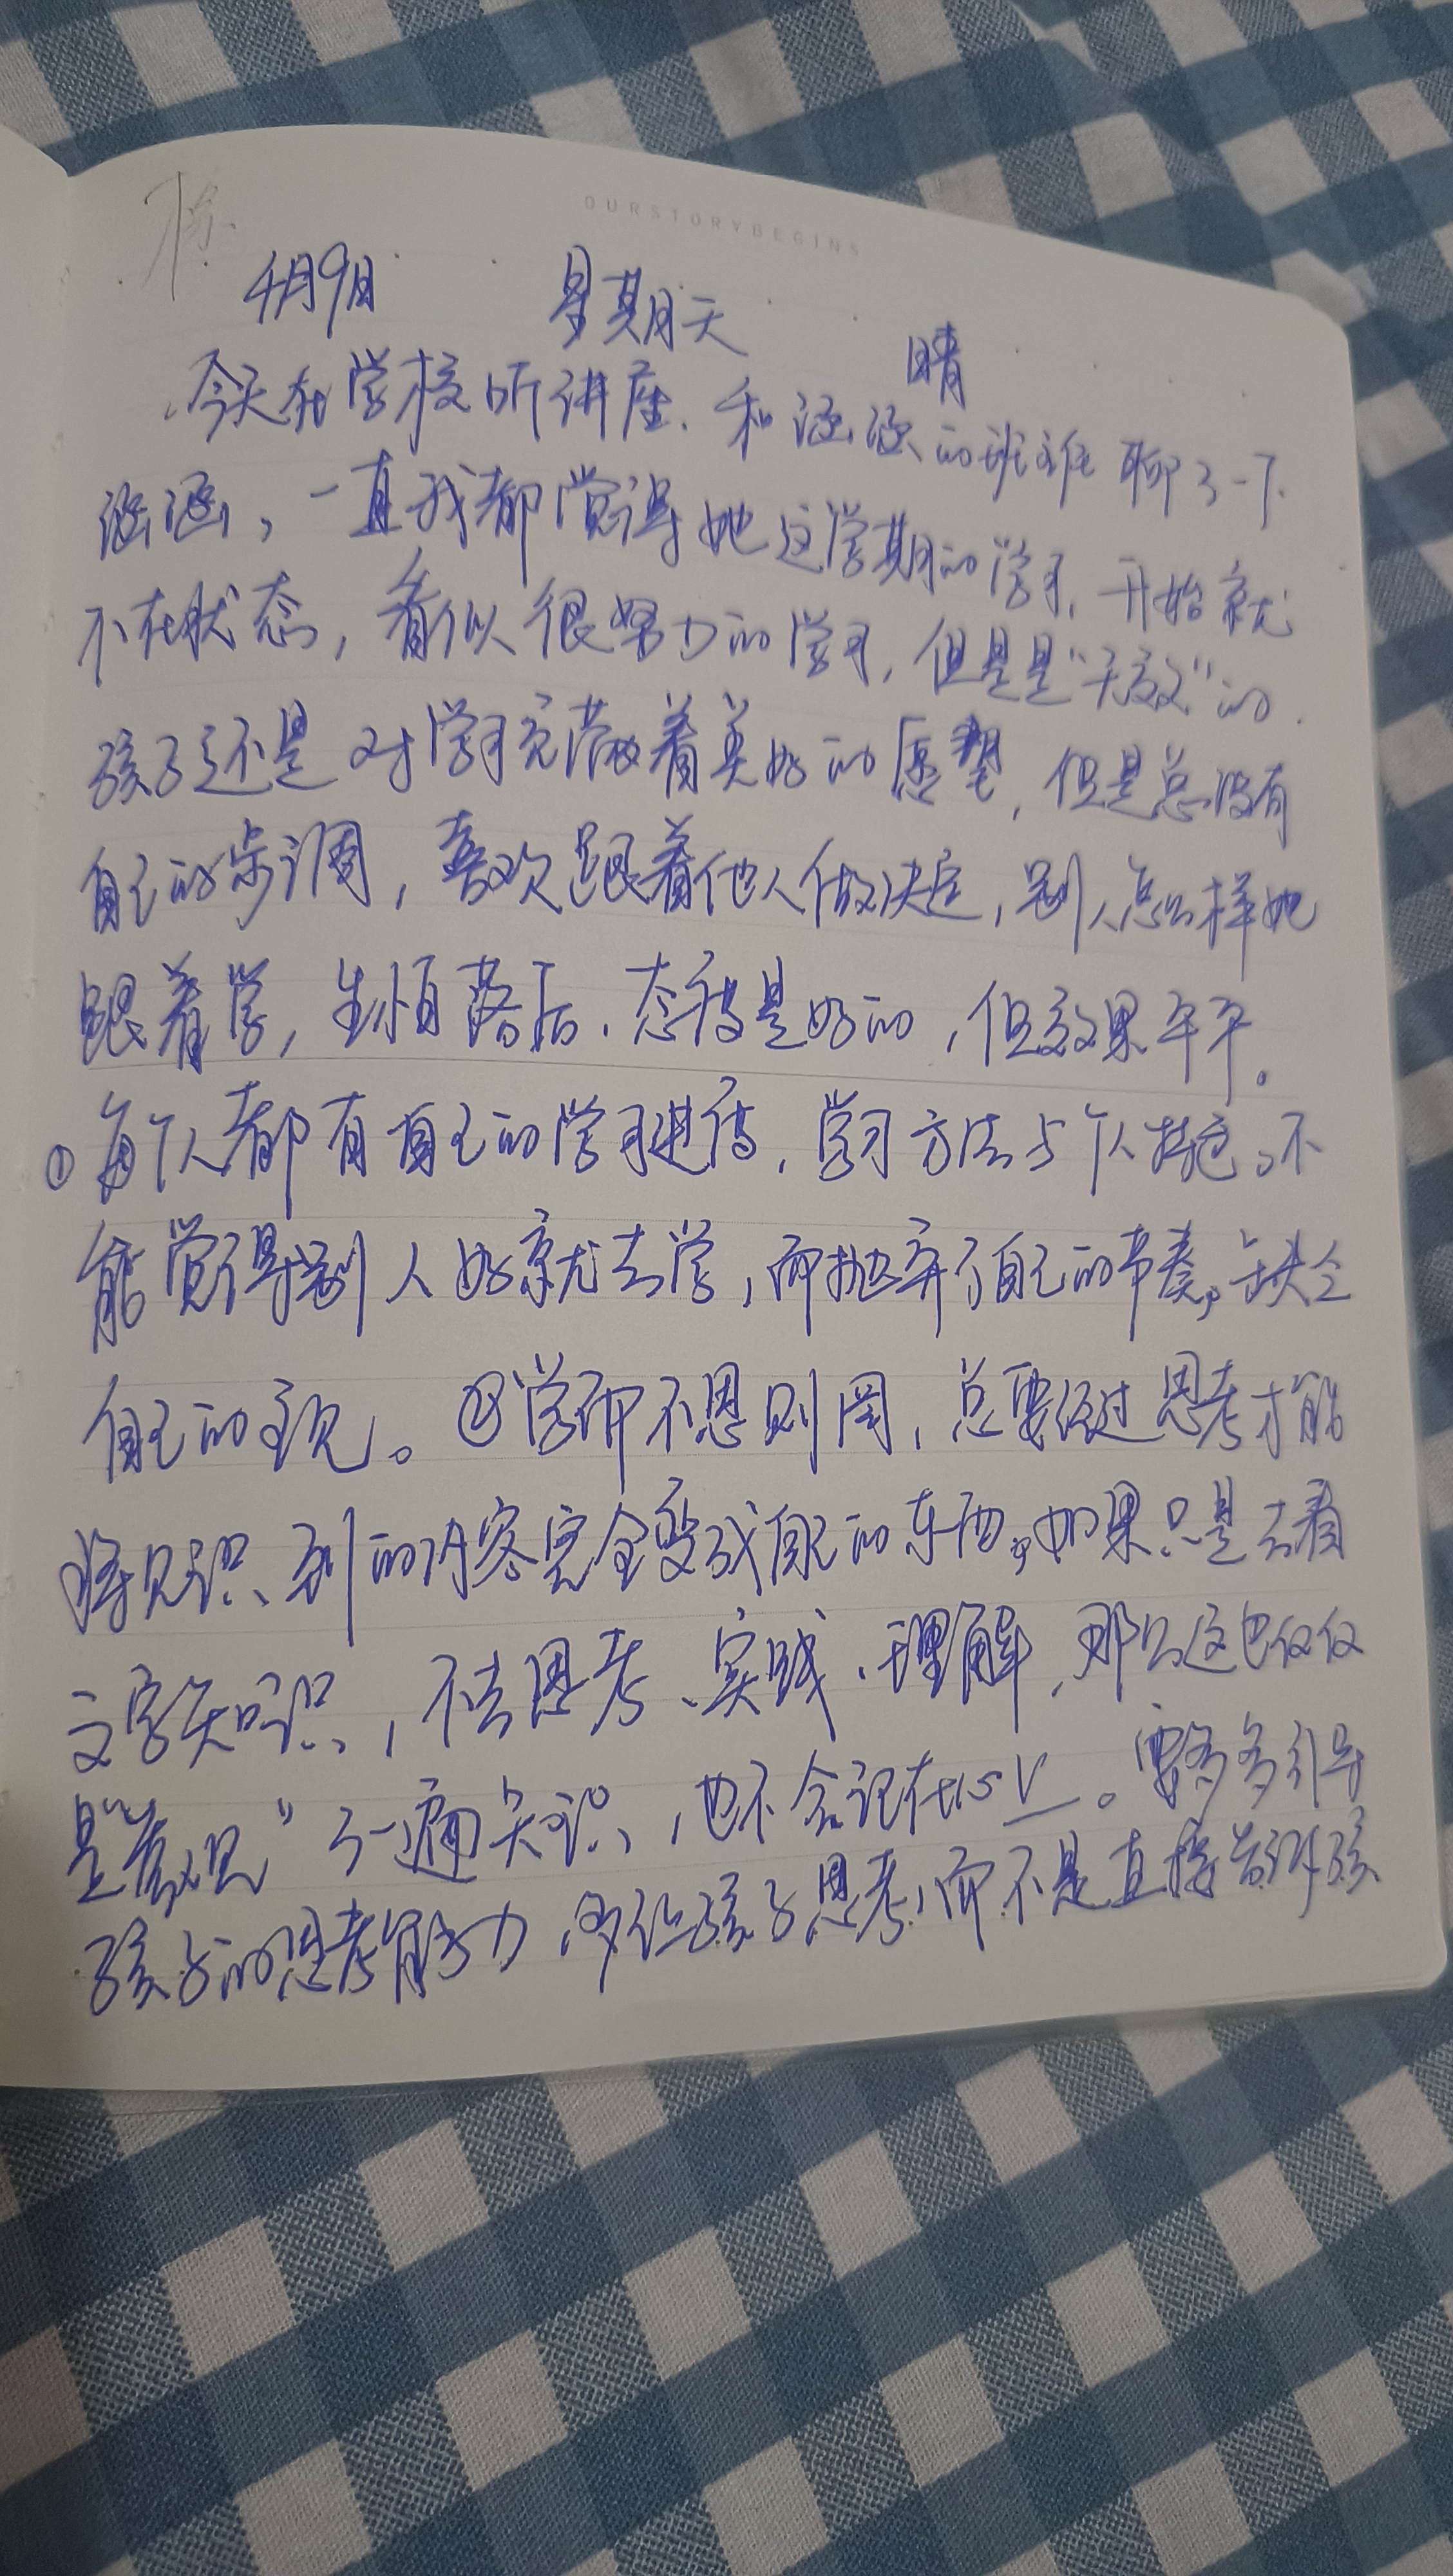 OURSTORYBEGINS
4月9日 星期天 晴
今天在学校听讲座.和涵涵的班主任聊了一下
涵涵,一直我都觉得她这学期的学习,开始就
不在状态,看似很努力的学习,但是是“无效”的.
孩子还是对学习充满着美好的愿望,但是总没有
自己的步调,喜欢跟着他人做决定,别人怎么样她
跟着学,生怕落后.态度是好的,但效果平平。
①每个人都有自己的学习进度,学习方法与个人特色。不
能觉得别人好就去学,而抛弃了自己的节奏,缺乏
自己的主见。②学而不思则罔,总要经过思考才能
将见识、到的内容完全变成自己的东西,如果只是去看
文字知识,不去思考、实践、理解,那么这也仅仅
是“看见”了一遍知识,也不会记在心。要多多引导
孩子的思考能力,多让孩子思考,而不是直接告诉孩